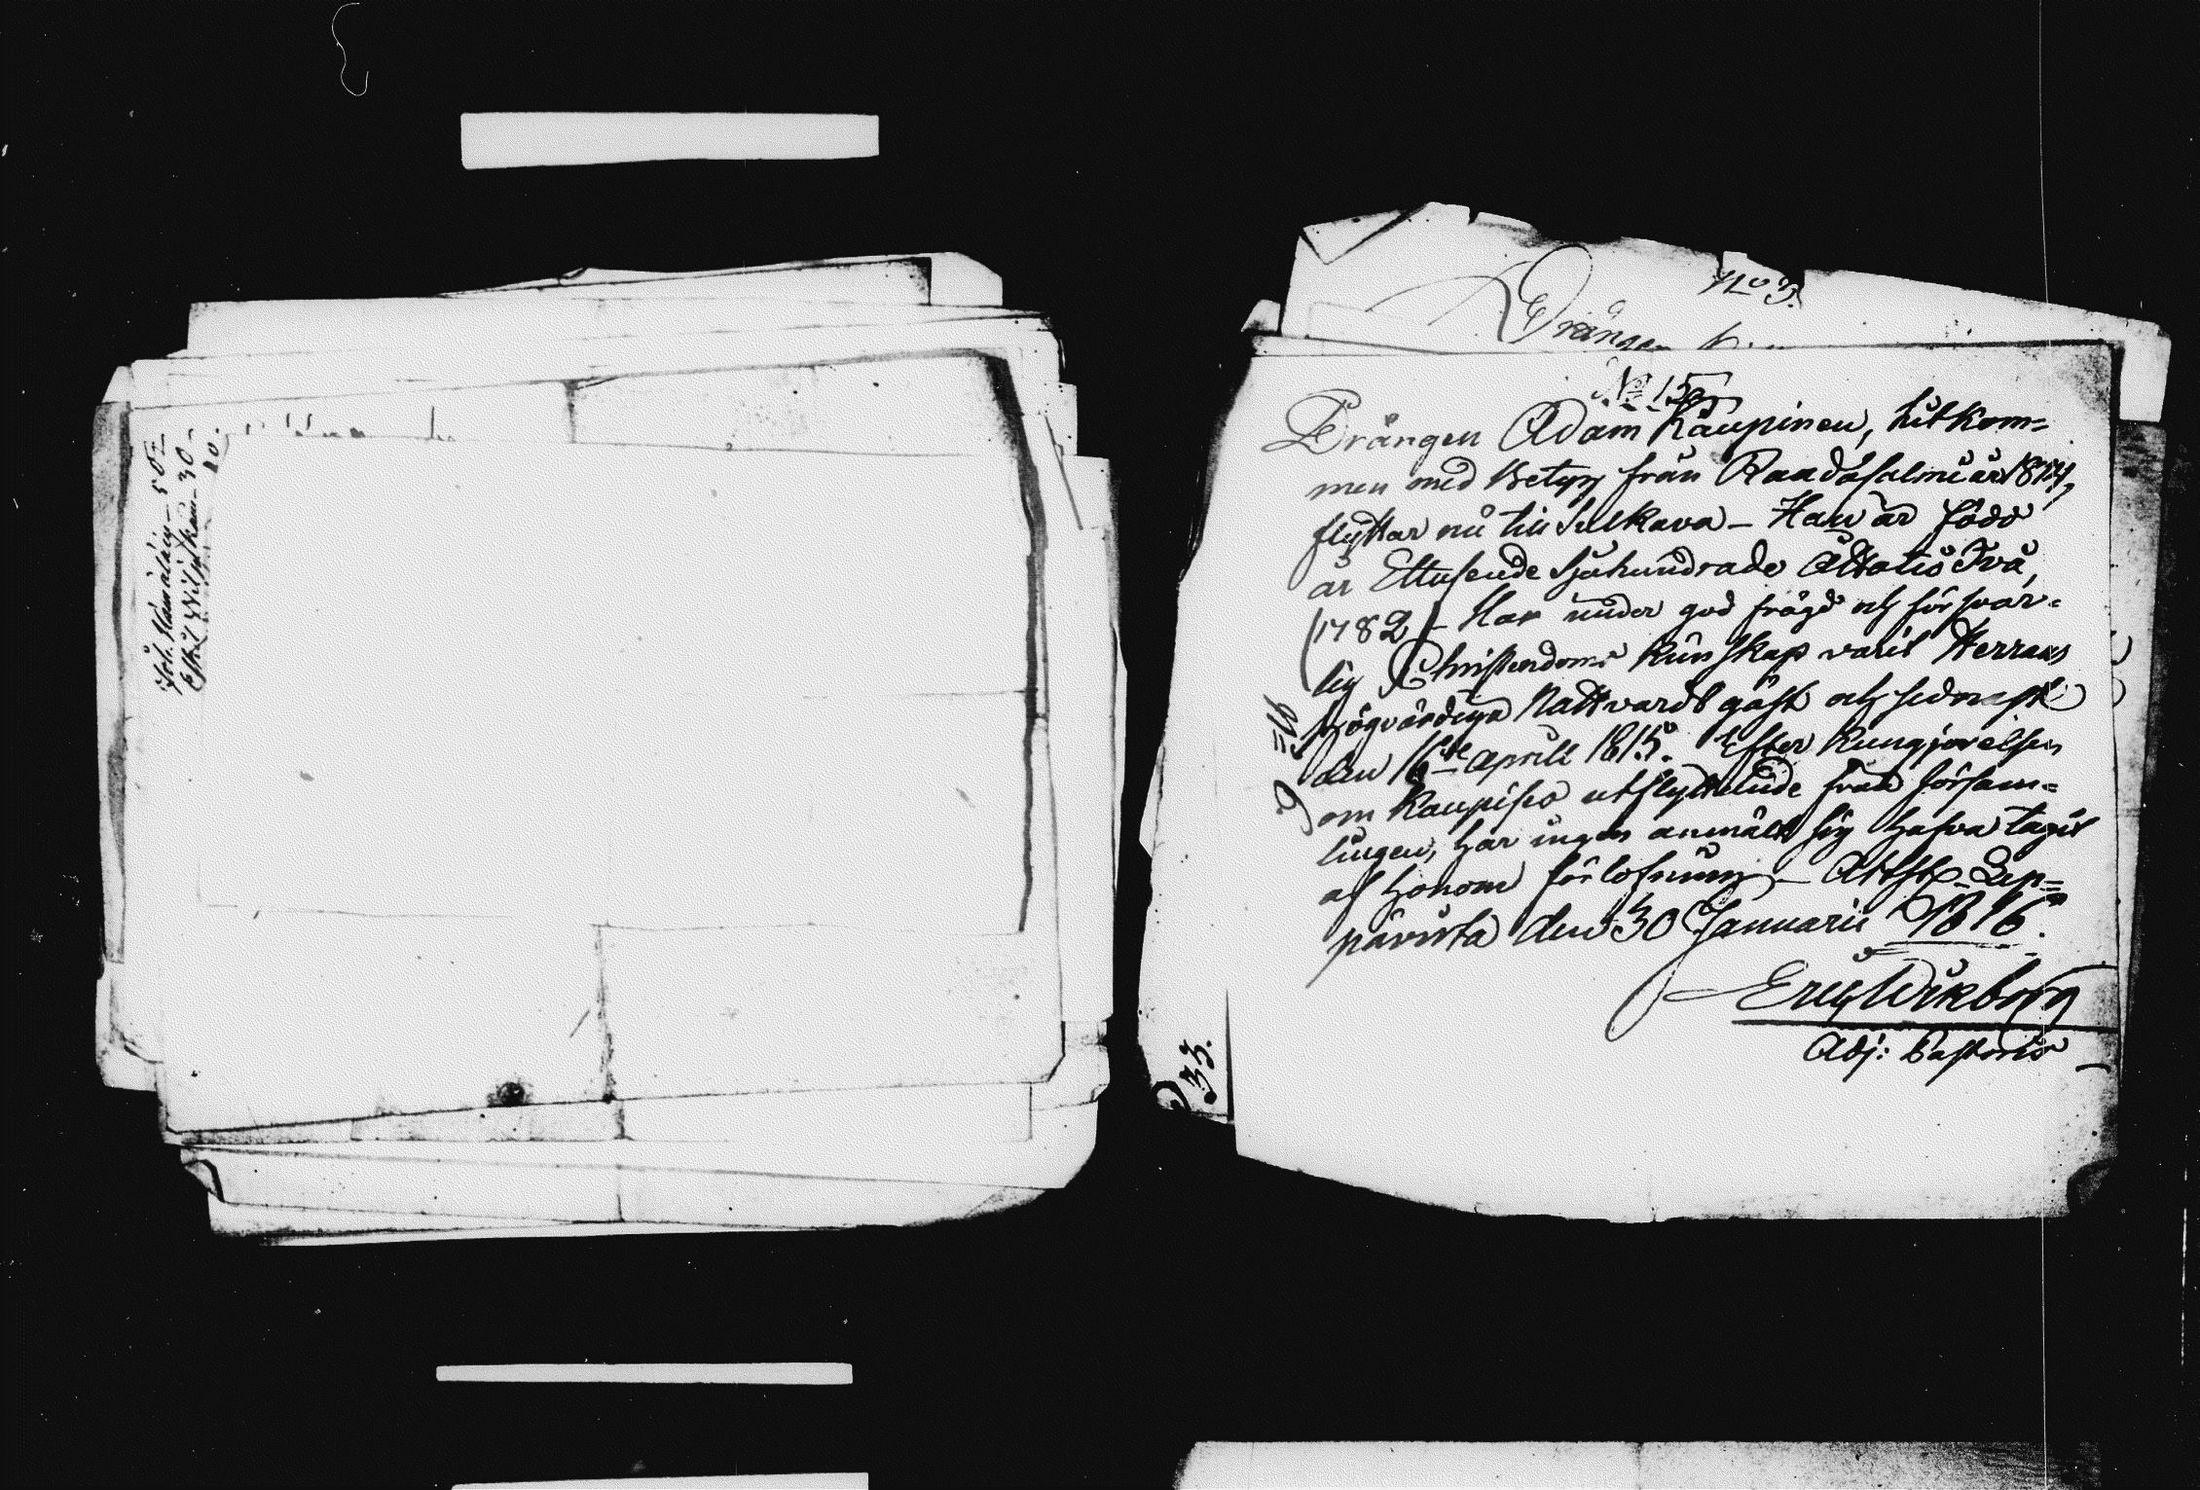 Joh. Hämäläin – 50
30
20.
No 3.
Drängen
No 15.
Drängen Adam Kaupinen, hitkom=
men med Betyg från Randasalmi år 1814,
flyttar nu till Sulkava – Han är född
år Ettusende Sjuhundrade Åttatio Två,
(1782) – Har under god frägd och försvar=
lig Christendoms kunskap varit Herrans
högvärdiga Nattvards gäst och sednast
den 16de April 1815. Efter kungjörelsen
om Kaupises utflyttande från försam=
lingen, har ingen anmält sig hafva tagit
af honom förlofning – Attst. Lep=
pävirta den 30 Januarii 1816.
Eric Wikborg
Adj: Pastoris
33.